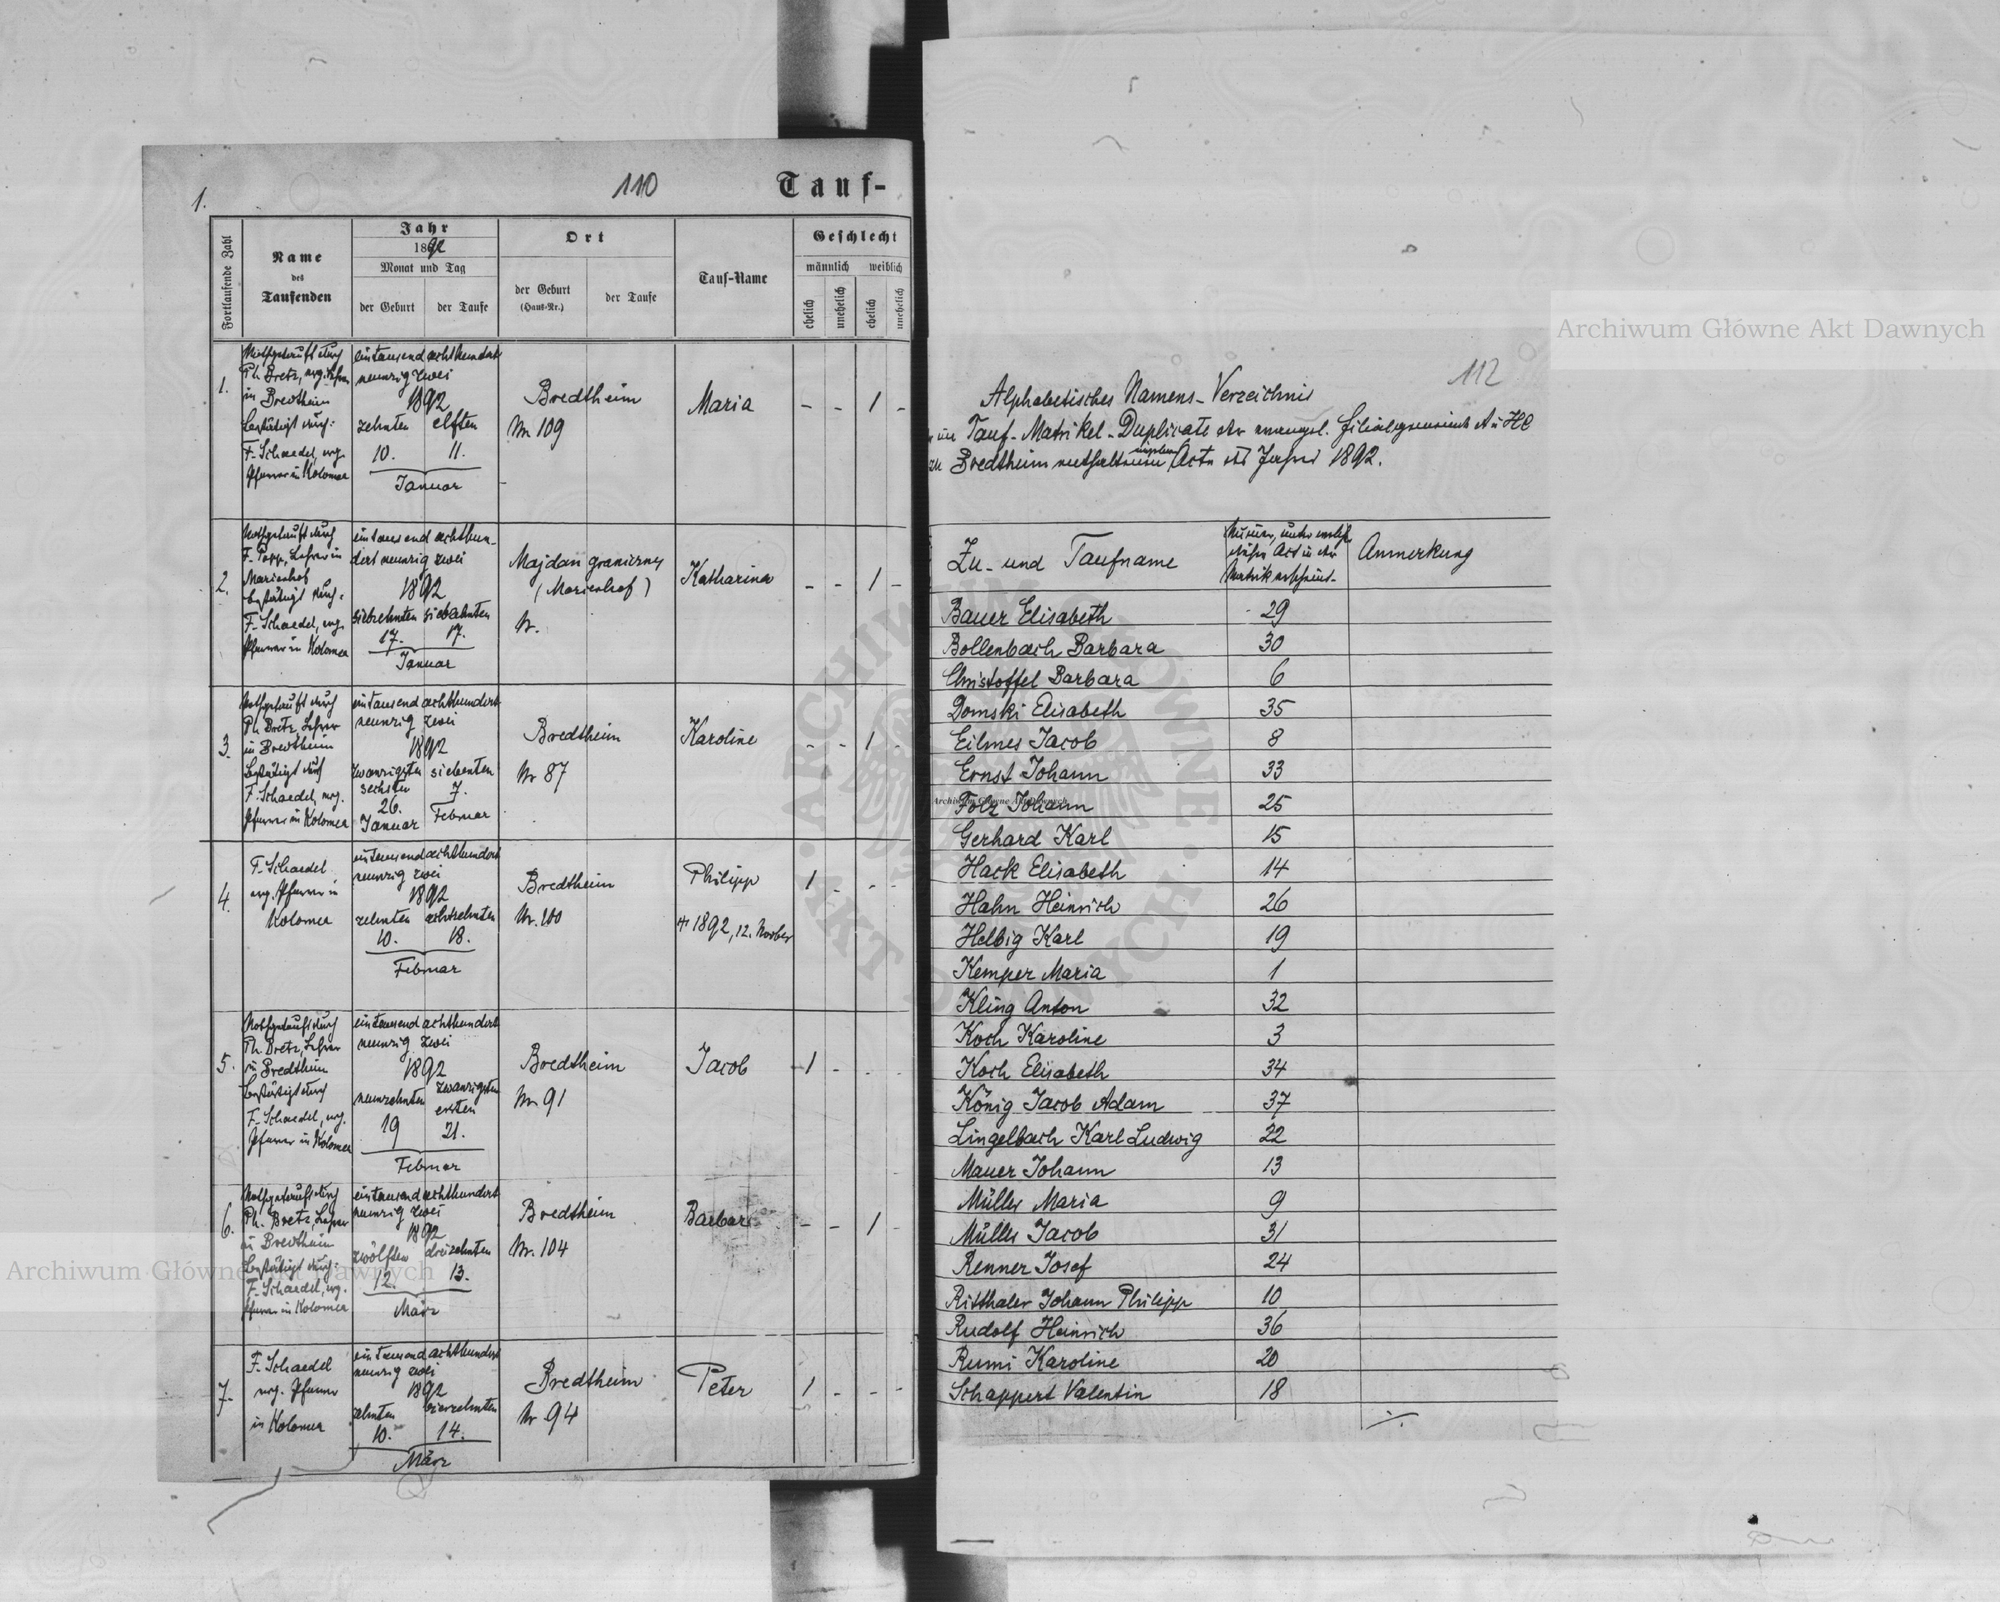 1.
110
Tauf-
Fortlaufende Zahl
Name
des
Taufenden
Jahr
1892
Monat und Tag
der Geburt
der Taufe
Ort
der Geburt
(Haus-Nr.)
der Taufe
Tauf-Name
Geschlecht
männlich
weiblich
ehelich
unehelich
ehelich
unehelich
1.
Nothgetauft durch
Ph. Bretz, evg. Lehrer
in Bredtheim
bestätigt durch:
F. Schaedel, evg.
Pfarrer in Kolomea
eintausend achthundert
neunzig zwei
1892
zehnten elften
10. 11.
Januar
Bredtheim
Nr. 109
Maria
- - 1 -
2.
Nothgetauft durch
F. Popp, Lehrer in
Marienhof
bestätigt durch:
F. Schaedel, evg.
Pfarrer in Kolomea
eintausend achthun-
dert neunzig zwei
1892
siebzehnten siebzehnten
17. 17.
Januar
Majdan graniczny
(Marienhof)
Nr.
Katharina
- - 1 -
3.
Nothgetauft durch
Ph. Bretz, Lehrer
in Bredtheim
bestätigt durch
F. Schaedel, evg.
Pfarrer in Kolomea
eintausend achthundert
neunzig zwei
1892
zwanzigsten siebenten
sechsten 7.
26.
Januar Februar
Bredtheim
Nr 87
Karoline
- - 1 -
4.
F. Schaedel
evg. Pfarrer in
Kolomea
eintausend achthundert
neunzig zwei
1892
zehnten achtzehnten
10. 18.
Februar
Bredtheim
Nr. 100
Philipp
1 - - -
+ 1892, 12. Novber
5.
Nothgetauft durch
Ph. Bretz, Lehrer
in Bredtheim
bestätigt durch
F. Schaedel, evg.
Pfarrer in Kolomea
eintausend achthundert
neunzig zwei
1892
neunzehnten zwanzigsten
ersten
19 21.
Februar
Bredtheim
Nr. 91
Jacob
1 - - -
6.
Nothgetauft durch
Ph. Bretz, Lehrer
in Bredtheim
bestätigt durch:
F. Schaedel, evg.
Pfarrer in Kolomea
eintausend achthundert
neunzig zwei
1892
zwölften dreizehnten
12. 13.
März
Bredtheim
Nr. 104
Barbara
- - 1 -
7.
F. Schaedel
evg. Pfarrer
in Kolomea
eintausend achthundert
neunzig zwei
1892
zehnten vierzehnten
10. 14.
März
Bredtheim
Nr 94
Peter
1 - - -
112
Alphabetisches Namens-Verzeichnis
Tauf-Matrikel-Duplicate der evangel. Filialgemeinde A u HC
zu Bredtheim enthaltenen Acte des Jahres 1892.
Zu- und Taufname
Nummer, unter welcher
dieser Act in der
Matrik erscheint.
Anmerkung
Bauer Elisabeth 29
Bollenbach Barbara 30
Christoffel Barbara 6
Domski Elisabeth 35
Eilmes Jacob 8
Ernst Johann 33
Folz Johann 25
Gerhard Karl 15
Hack Elisabeth 14
Hahn Heinrich 26
Helbig Karl 19
Kemper Maria 1
Kling Anton 32
Koch Karoline 3
Koch Elisabeth 34
König Jacob Adam 37
Lingelbach Karl Ludwig 22
Mauer Johann 13
Müller Maria 9
Müller Jacob 31
Renner Josef 24
Ritthaler Johann Philipp 10
Rudolf Heinrich 36
Rumi Karoline 20
Schappert Valentin 18
./.
Archiwum Główne Akt Dawnych
Archiwum Główne Akt Dawnych
Archiwum Główne Akt Dawnych
ARCHIWUM GŁÓWNE AKT DAWNYCH